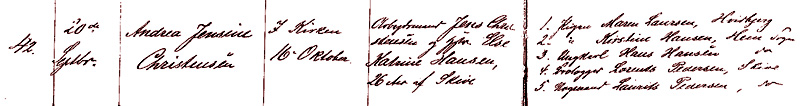 42.
20de
Septbr.
Andrea Jensine
Christensen
I Kirken
16 Oktober
Arbejdsmand Jens Chri-
stensen og Hstr. Else
Katrine Hansen,
26 Aar af Skive
1. Pigen Maren Laursen, Hvidbjerg
2. " Kirstine Hansen, Hem Sogn
3. Ungkarl Hans Hansen do
4. Urmager Lorends Pedersen, Skive
5. Laurits Pedersen, do